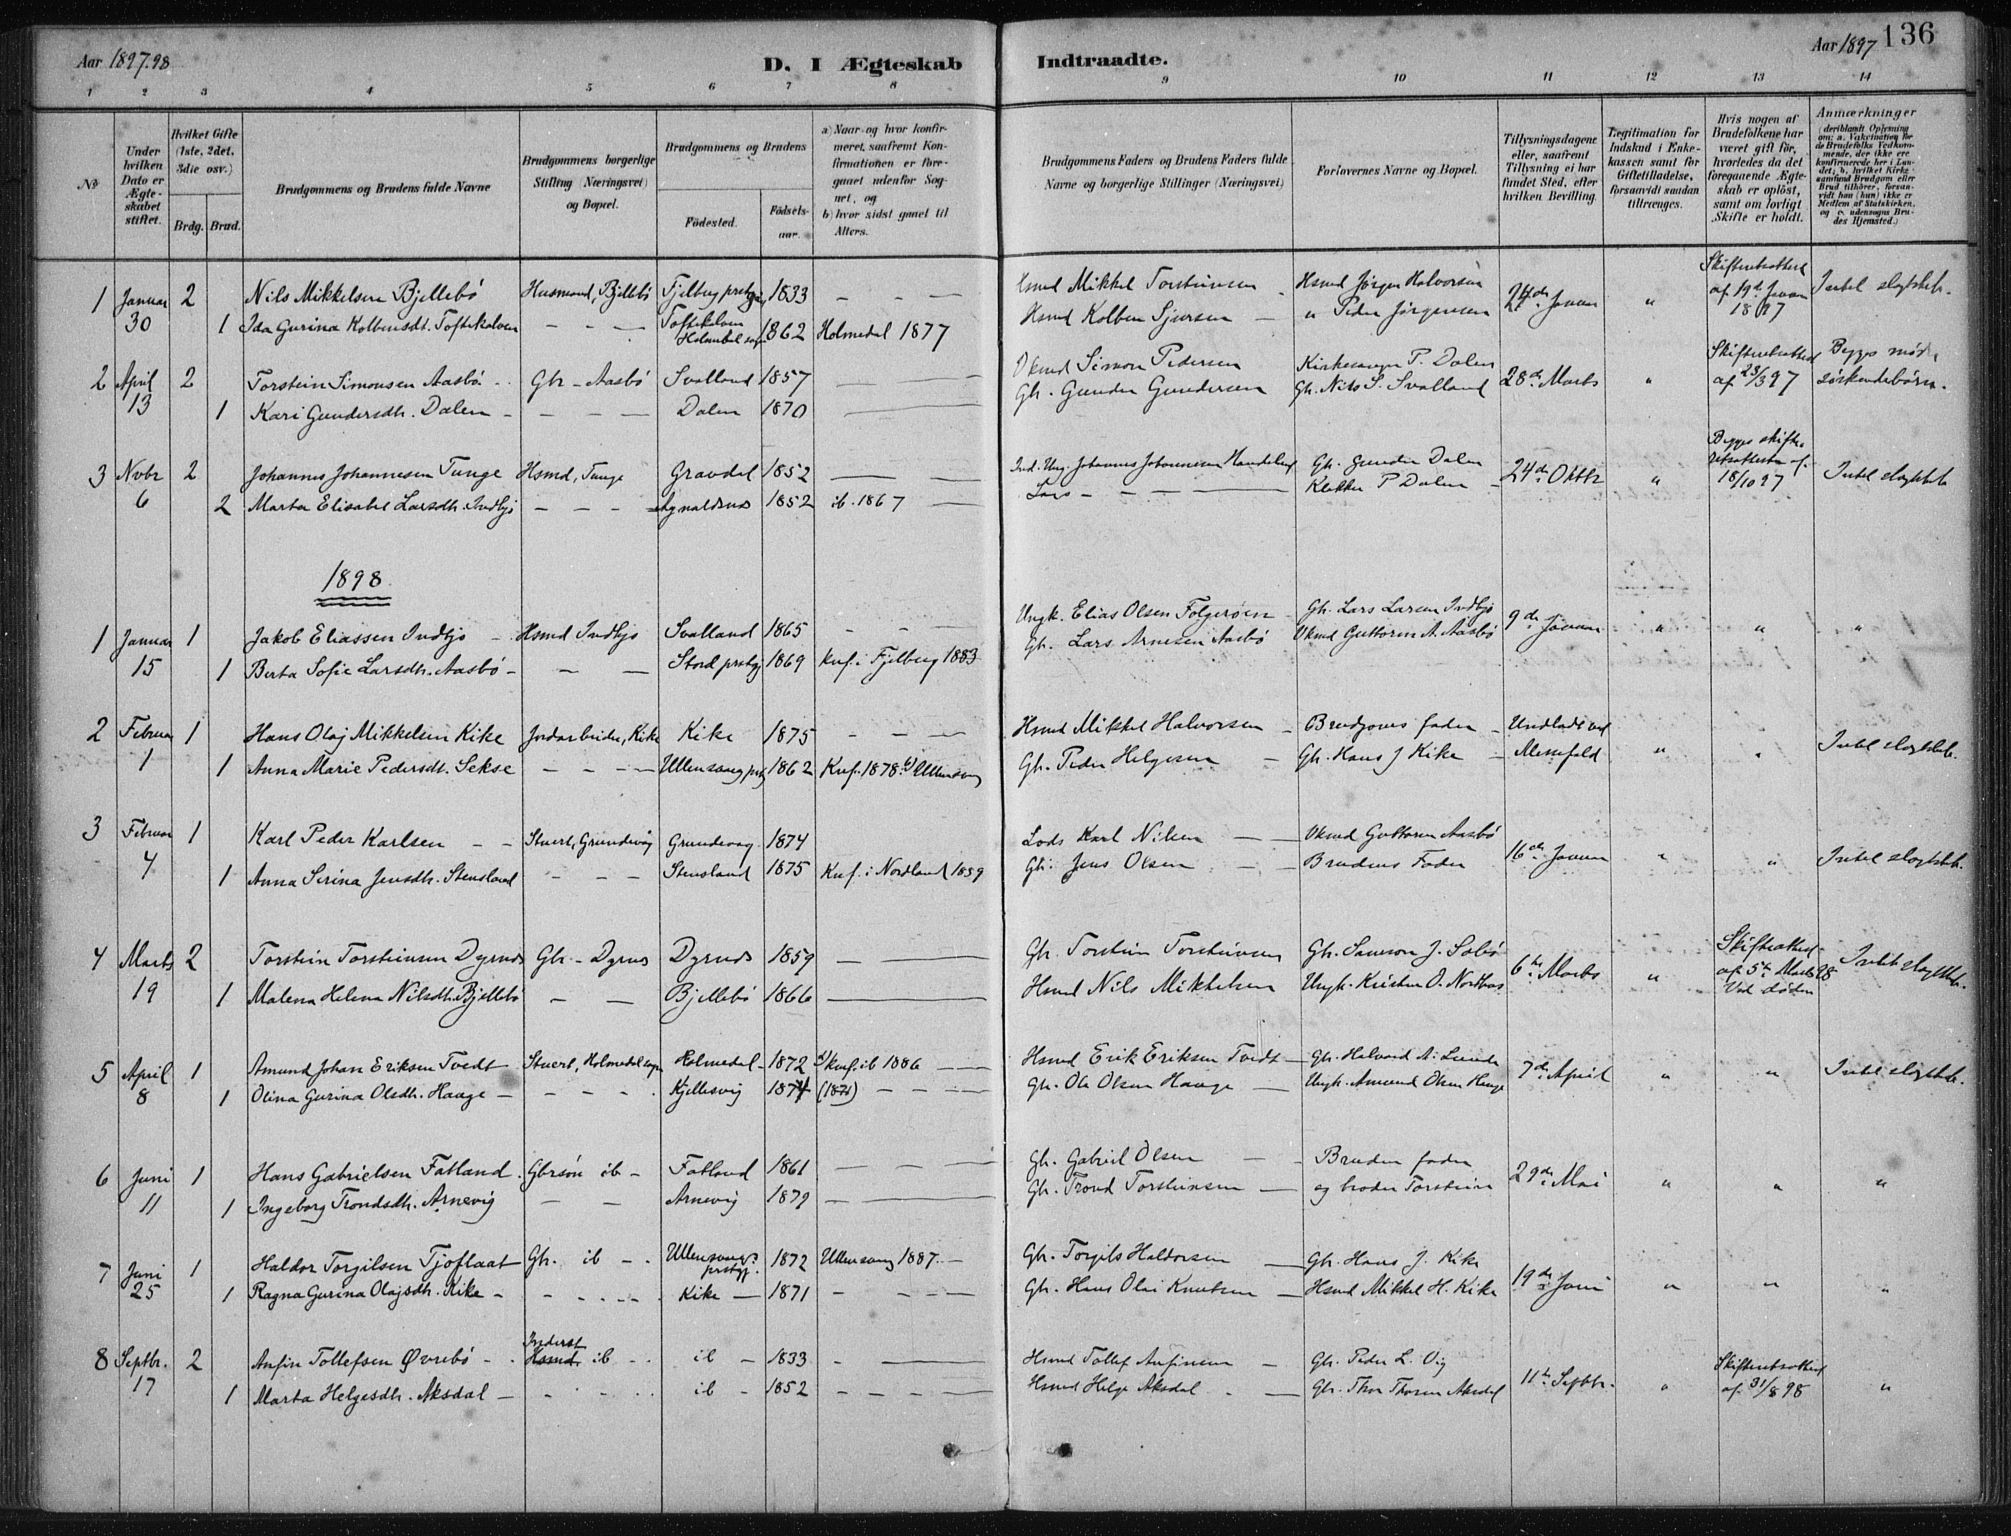 Aar 1897.98
D. I Ægteskab Indtraadte.
Aar 1897 136
1 2 3 4 5 6 7 8 9 10 11 12 13 14
No
Under hvilken Dato er Ægteskabet stiftet.
Hvilket Gifte (1ste, 2det, 3die osv.)
Brdg. Brud.
Brudgommens og Brudens fulde Navne
Brudgommens borgerlige Stilling (Næringsvei) og Bopæl.
Brudgommens og Brudens
Fødested.
Fødselsaar.
a) Naar og hvor konfirmeret, saafremt Konfirmationen er foregaaet udenfor Sognet, og
b) hvor sidst gaaet til Alters.
Brudgommens Faders og Brudens Faders fulde Navne og borgerlige Stillinger (Næringsvei)
Forlovernes Navne og Bopæl.
Tillysningsdagene eller, saafremt Tillysning ei har fundet Sted, efter hvilken Bevilling.
Legitimation for Indskud i Enkekassen samt for Giftetilladelse, forsaavidt saadan tiltrænges.
Hvis nogen af Brudefolkene har været gift før, hvorledes da det foregaaende Ægteskab er opløst, samt om lovligt Skifte er holdt.
Anmærkninger
(deriblandt Oplysning om: a. Vakcination for de Brudefolks Vedkommende, der ikke ere konfirmerede her i Landet; b. hvilket Kirkesamfund Brudgom eller Brud tilhører, forsaavidt han (hun) ikke er Medlem af Statskirken, og c. udensogns Brudes Hjemsted.)
1 Januar 2 Nils Mikkelsen Bjellebö Husmand, Bjellebö Fjelberg prstgj 1833 – – – Hsmd Mikkel Torsteinsen Hsmd Jørgen Halvorsen 24de Januar " Skifteretsattest af 19d. Januar 1897 Intet slægtsk.
30 1 Ida Gurina Kolbensdt. Toftekalven – – – Toftekalven Holmedal sogn 1862 Holmedal 1877 Hsmd Kolben Sjursen – " Peder Jørgensen
2 April 2 Torstein Simonsen Aasbö Gbr – Aasbö Svalland 1857 Simon Pedersen Kirkesanger P. Dalen 28de Marts " Skifteretsattest af 23/3 97 Begges mødre søskendebørn.
13 1 Kari Gundersdtr. Dalen – Dalen 1870 Gbr. Gunder Gundersen Gbr. Nils S. Svalland
3 Novbr 2 Johannes Johannesen Tunge Hsmd, Tunge Gravdal 1852 Johannes Johannesen Gbr. Gunder Dalen 24de Oktbr " Begges skifteretsattester af 18/10 97 Intet slægtsk
6 2 Marta Elisabet Larsdtr. Indbjo – – – 1852 ib. 1867 Lars – – – Klokker P Dalen
1898
1 Januar 1 Jakob Eliassen Indbjo – Hsmd Indbjo Svalland 1865 – – – Ungk. Elias Olsen Folgerøen Gbr. Lars Larsen Indbjo 9de Januar " " "
15 1 Berta Sofie Larsdtr. Aasbö – – – Stord prstgj 1869 Knf. i Fjelberg 1883 Gbr. Lars Arnesen Aasbö Guttorm A. Aasbö
2 Februar 1 Hans Olaj Mikkelsen Kike Jordarbeider, Kike Kike 1875 – – – Hsmd Mikkel Halvorsen – Brudgoms fader – Undladt ved " " Intet slægtsk.
1 1 Anna Marie Pedersdtr. Sekse – – – Ullensvang prstgj 1862 Knf. 1878 Ullensvang Gbr. Peder Helgesen – Gbr. Hans J Kike –
3 Februar 1 Karl Peder Karlsen – – Stuert, Grundevåg Grundevag 1874 Lods Karl Nilsen – – Guttorm Aasbö 16de Januar " " Intet slægtsk.
4 1 Anna Serina Jensdtr. Stensland – – – Stensland 1875 Knf. i Nordland 1889 Gbr. Jens Olsen – – Brudens Fader
4 Marts 2 Torstein Torsteinsen Dyrnes Gbr – Dyrnes Dyrnes 1859 – – Gbr Torstein Torsteinsen Gbr. Samson J. Sæbö 6te Marts " Skifteattest af 5te Marts 98 Ved døden Intet slægtsk.
19 1 Malena Helena Nilsdtr. Bjellebö – – Bjellebö 1866 Hsmd Nils Mikkelsen Ungk. Kristen O. Northus
5 April 1 Amund Johan Eriksen Tvedt Stuert, Holmedal sogn Holmedal 1872 knf. ib 1886 – – Hsmd Erik Eriksen Tvedt – Gbr. Halvard A. Lunde 7de April " " Intet slægtsk.
8 1 Olina Gurina Olsdtr. Hauge – – – – Kjellesvig 1874 – – – Gbr. Ole Olsen Hauge – Ungk. Amund Olsen Hauge
6 Juni 1 Hans Gabrielsen Fatland Gbrsøn ib – Fatland 1861 – – – Gbr. Gabriel Olsen – – Brudens fader 29de Mai " " "
11 1 Ingeborg Trondsdtr. Arnevig – – Arnevig 1879 – Gbr. Trond Torsteinsen – og broder Torstein
7 Juni 1 Haldor Torgilsen Tjoflaat Gbr. ib – . Ullensvangs prstgj. 1872 Ullensvang 1887 – Gbr. Torgils Haldorsen – Gbr. Hans J. Kike 19de Juni " " "
25 1 Ragna Gurina Olajsdtr. Kike – – – – – Kike – 1871 – – – – Gbr. Hans Olai Knutsen – Hsmd Mikkel H. Kike
8 Septbr. 2 Anfin Tollefsen Øvrebö – . Inderst Hsmd. ib – . ib – 1833 – – Hsmd Tollef Anfinsen – Gbr. Peder L. Vig 11te Septbr. " Skifteretsattest af 31/8 98 "
17 1 Marta Helgesdtr. Aksdal – – – – ib – 1852 – – – – Hsmd Helge Aksdal – – Gbr. Thor Thorsen Aksdal